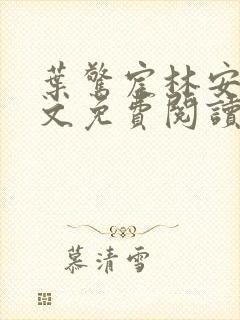 葉驚宦林安
文免費閱讀
慕清雪